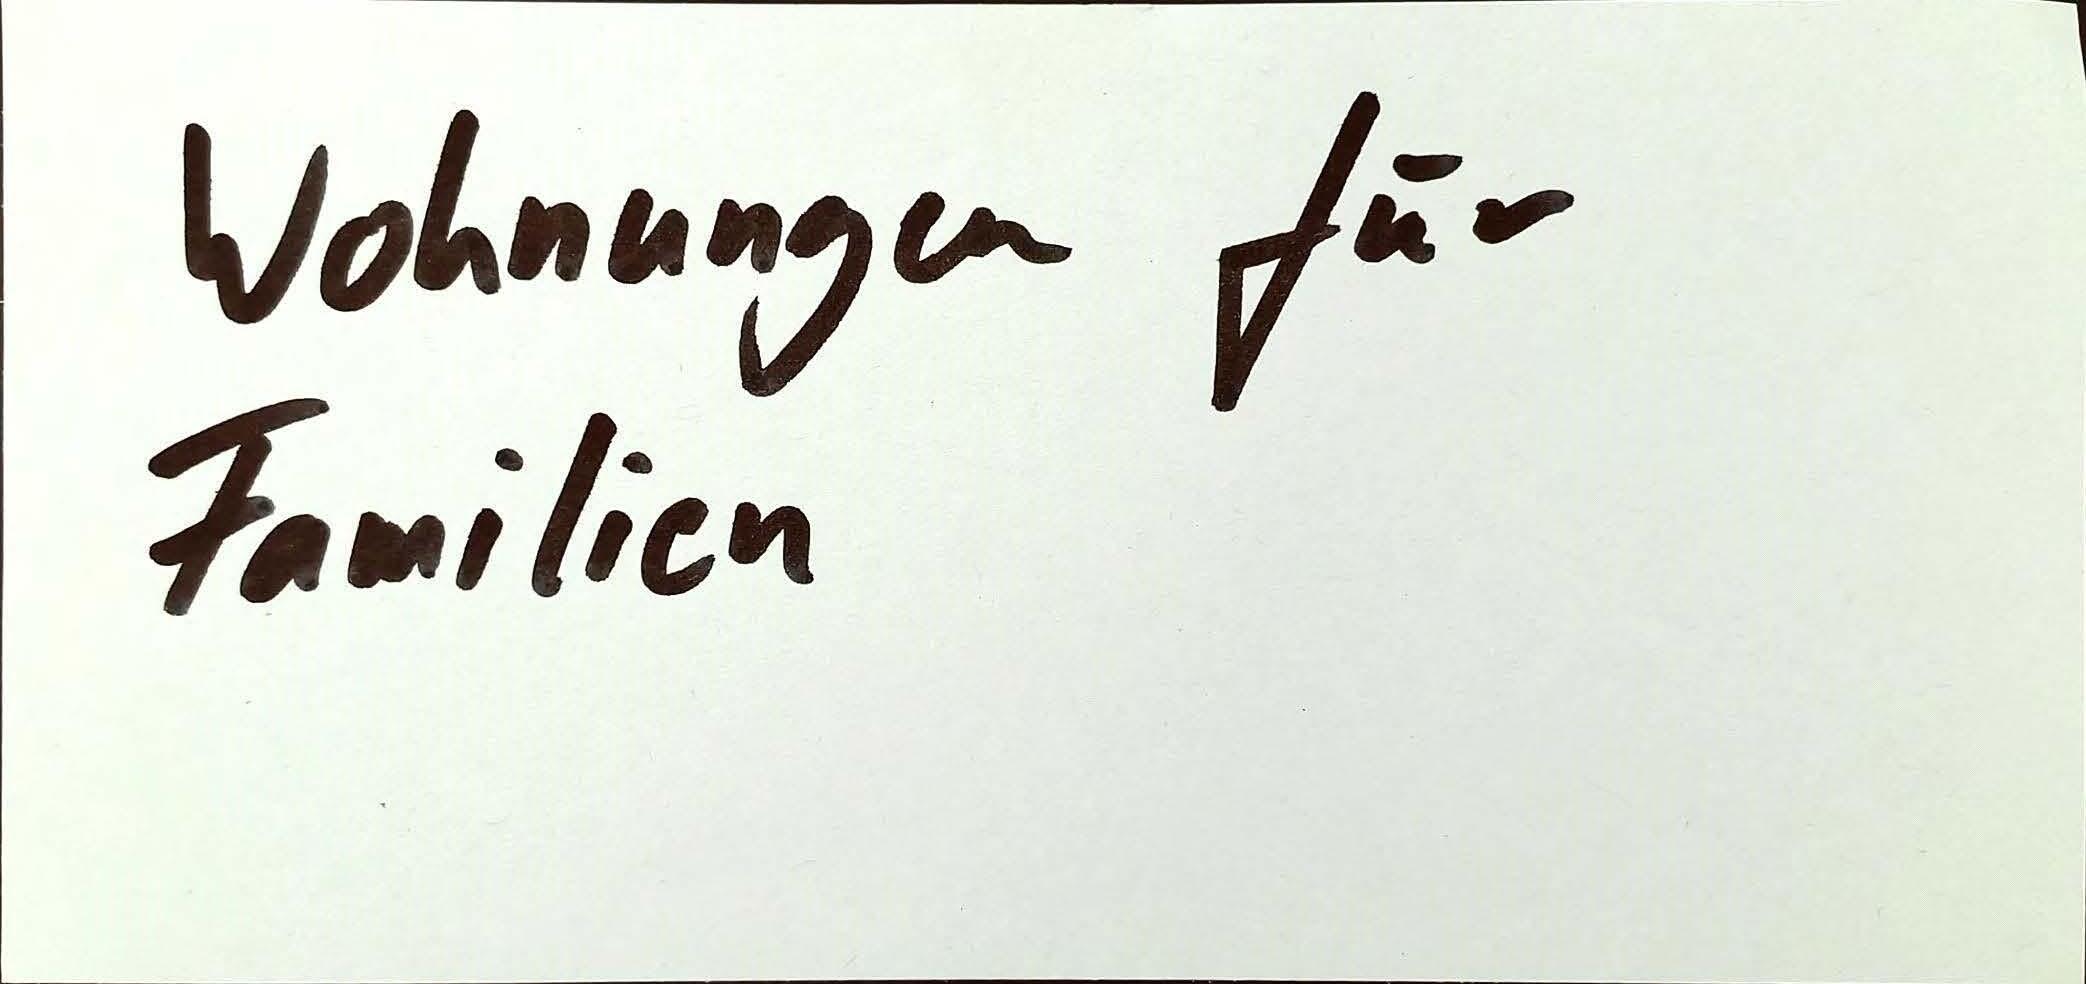 Wohnungen für
Familien